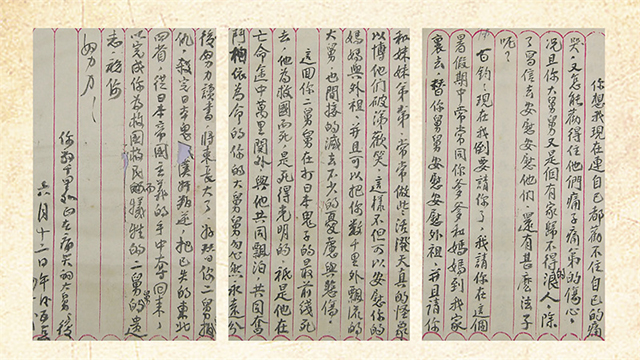 你想我现在連自己都荔不住自己的痛
哭，又怎能荔得住他們痛子痛弟的傷心。
況且你大舅舅又是個有家歸不得的浪人，除
了寫信去安慰安慰他們，還有甚麽法子
呢？
古鈞：現在我倒要請你了，我請你在這個
暑假期中常常同你爹爹和媽媽到我家
裏去，替你舅舅安慰安慰外祖，并且請你
和妹妹弟弟，常常做些活潑天真的怪樣
以博他們破涕歡笑，這樣不但可以安慰你的
媽媽與外祖，并且可以把你數千里外飄流的
大舅，也間接的減去不少的憂慮與悲傷。
這回你二舅舅在打日本鬼子的最前綫死
去，他為救國而死，是死得光明的，祇是他在
亡命途中萬里関外與他共同飄泊，共同奮
鬥相依為命的你的大舅舅勿忽然永遠分
後努力讀書，將來長大了，好替你二舅報
仇，殺完日本鬼漢奸叛逆，把已失的東北
四省，從日本帝國主義的手中奪回來，
以完成你為救國救民而犧牲的二舅舅的遺
志，祝你
努力！
六月十二日午